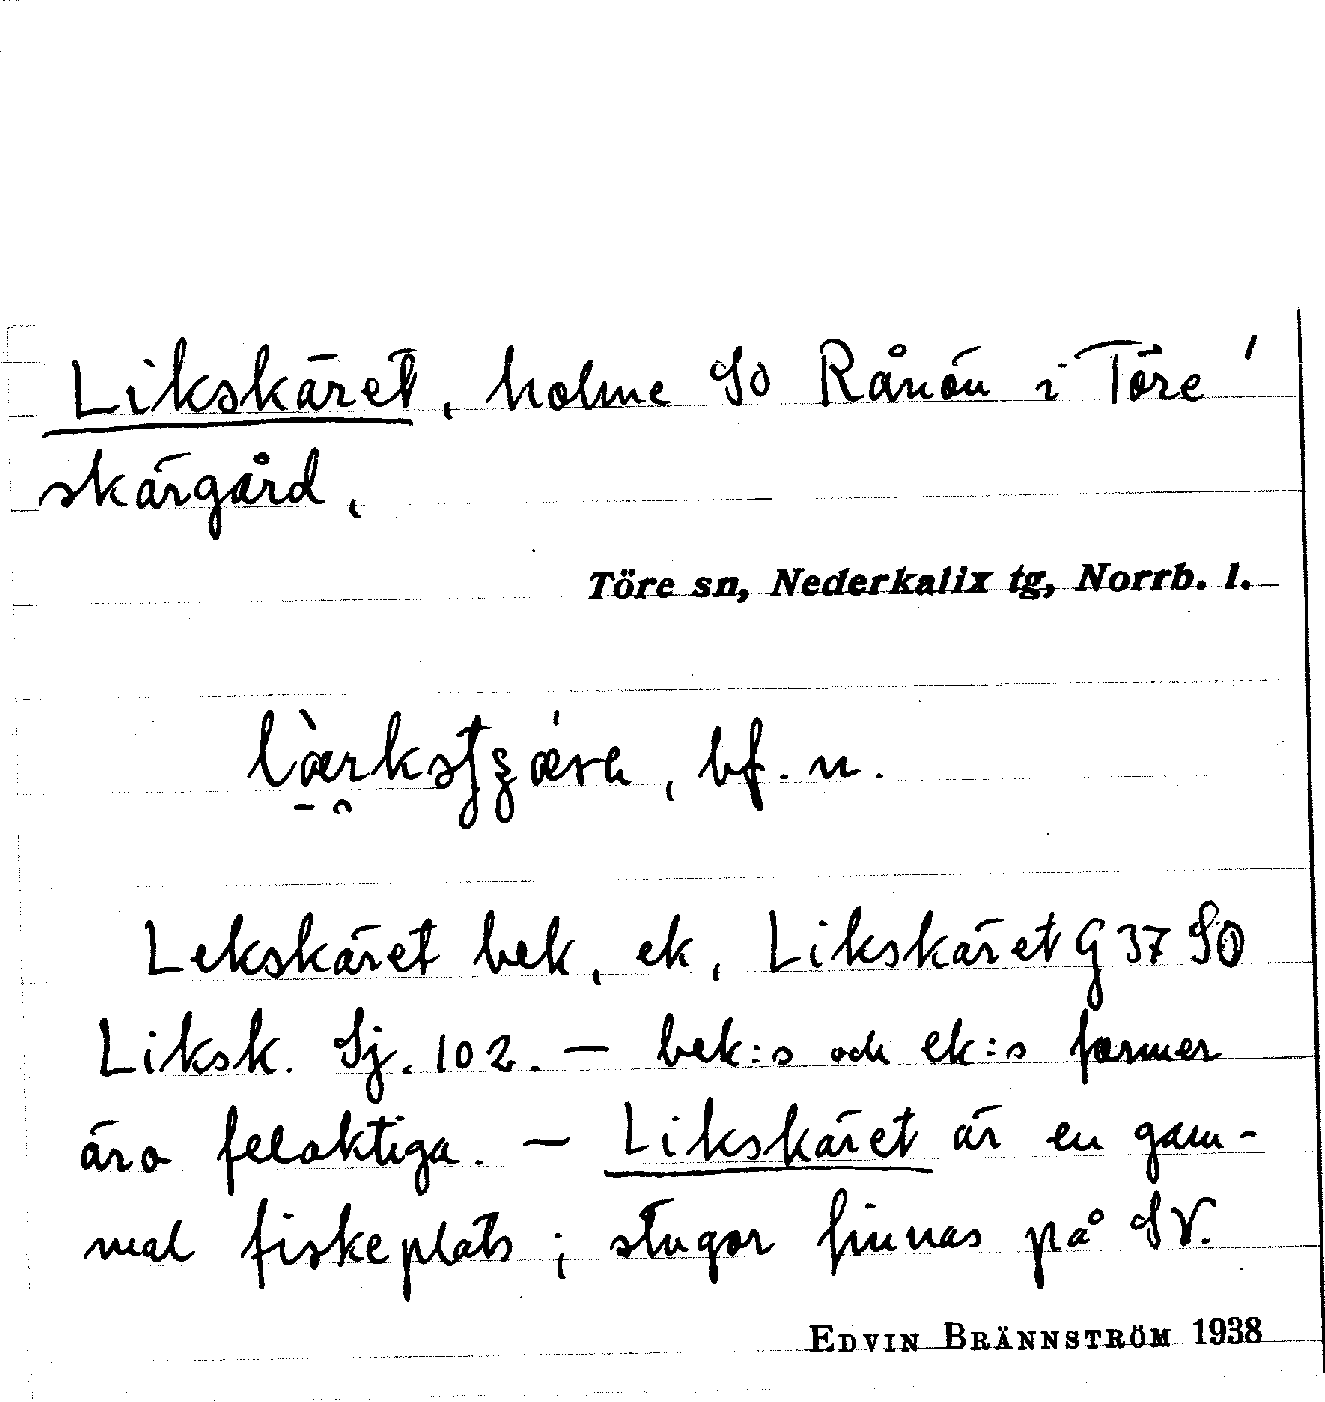 Likskäret, holme SO Rånön i Töre
skärgård.
Töre sn, Nederkalix tg, Norrb. l.
bf. n.
Lekskäret bek, ek, Likskäret G 37 SO
Liksk. Sj. 102. – bek:s och ek:s former
äro felaktiga. – Likskäret är en gam-
mal fiskeplats; stugor finnas på SV.
EDVIN BRÄNNSTRÖM 1938